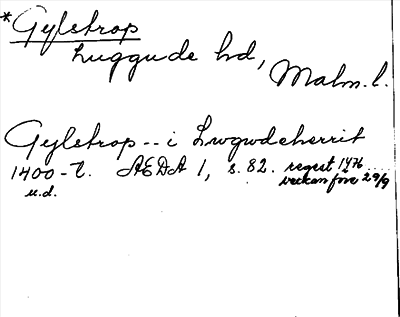 *Gylstrop
Luggude hd,
Malm. l.
Gylstrop -- i Lwgwdeherrit
1400-t. ÆDA 1, s. 82. regest 1476 ....
u.d. veckan före 29/9